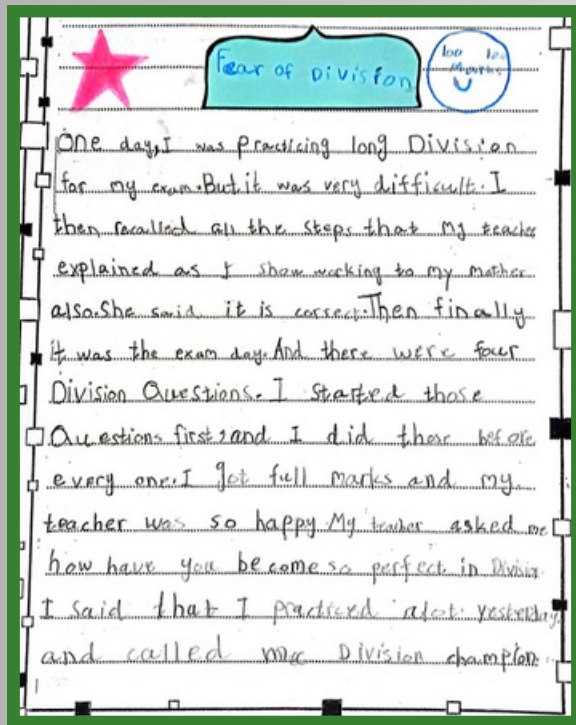 Fear of Division
100 100
Marks
One day, I was Practicing long Division
for my exam. But it was very difficult. I
then recalled all the steps that My teacher
explained as I show working to my Mother
also. She said it is correct. Then finally
it was the exam day. And there were four
Division Questions. I started those
Questions first, and I did those before
every one. I got full marks and my
teacher was so happy My teacher asked me
how have you become so perfect in
I said that I practiced alot yesterday
and called me Division champion.